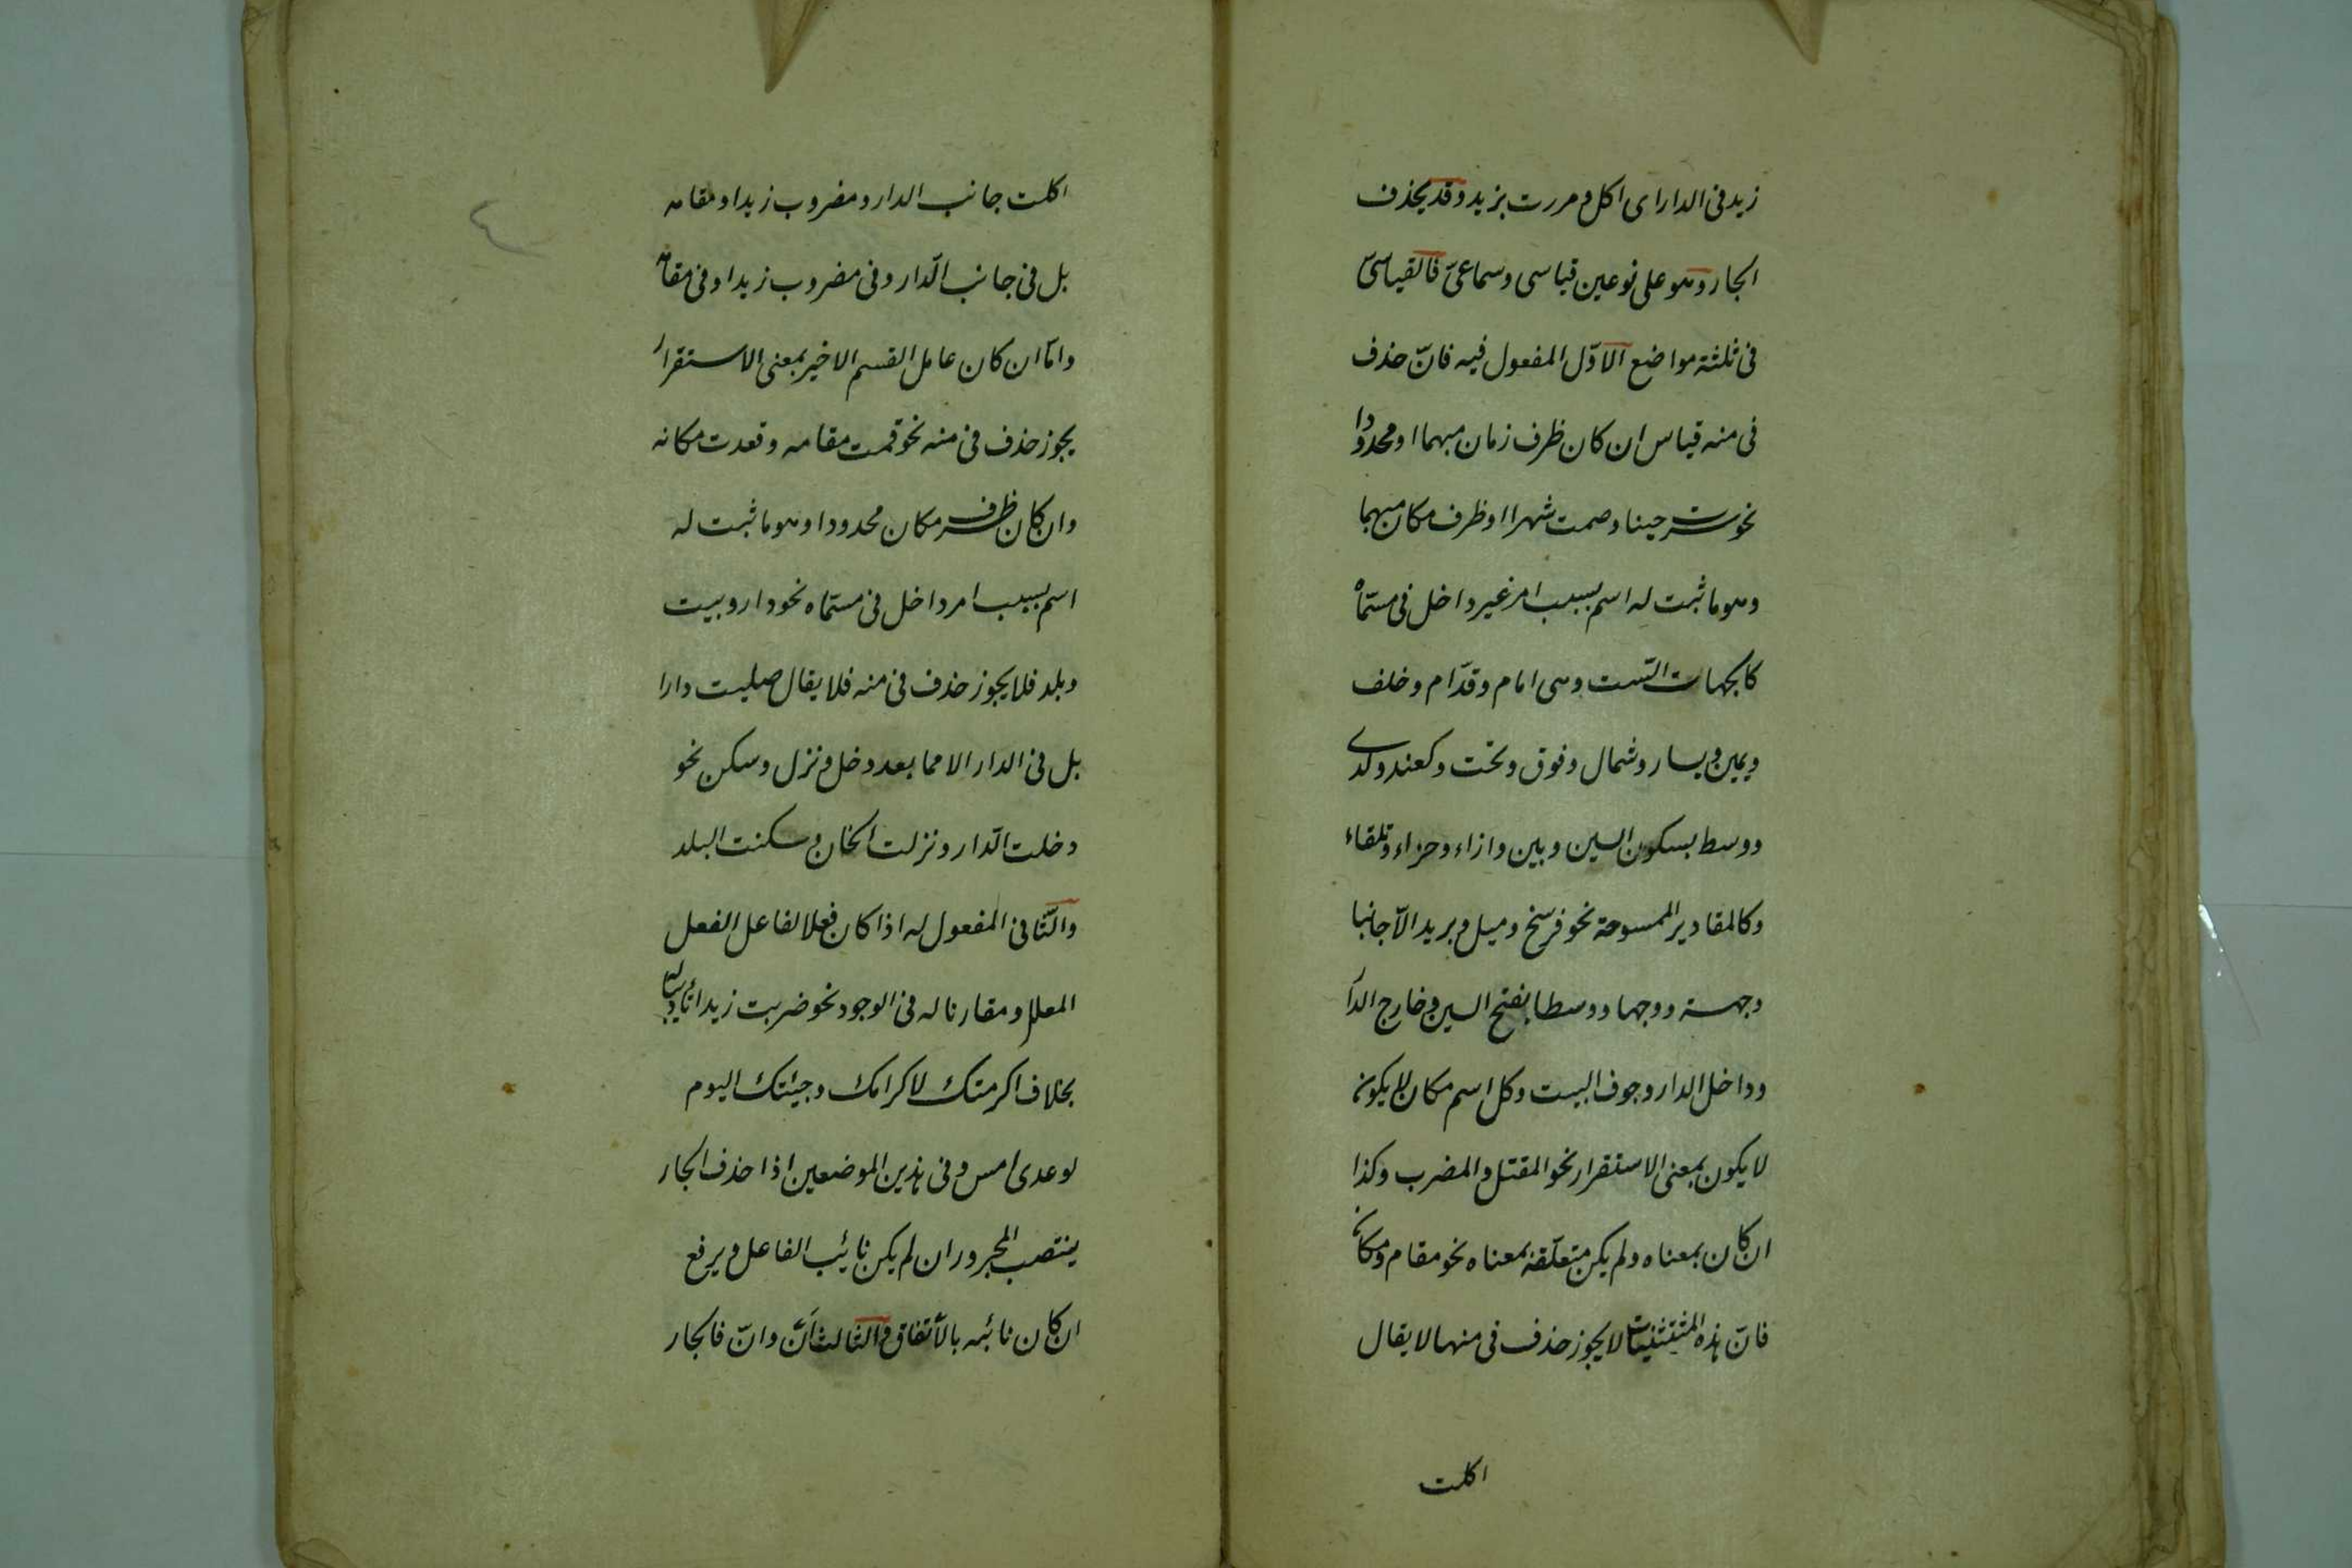 زيد فى الدار اى اكل و مررت بزيد وقد يحذف
الجار وهو على نوعين قياسى وسماعىّ فالقياسىّ
فى ثلثة مواضع الاوّل المفعول فيه فانّ حذف
فى منه قياس ان كان ظرف زمان مبهما او محدودا
نحو سرت حينا وصمت شهرا او ظرف مكان مبهما
وهو ما ثبت له اسم بسبب امر غير داخل فى مسمّاه
كالجهات الستّ وهى امام وقدّام وخلف
ويمين ويسار وشمال وفوق وتحت وكعند ولدى
ووسط بسكون السين وبين وازاء وحزاء وتلقاء
وكالمقادير الممسوحة نحو فرسخ وميل وبريد الّا جانبا
وجهة ووجها ووسطا بفتح السين وخارج الدار
وداخل الدار وجوف البيت وكل اسم مكان لا يكون
لا يكون بمعنى الاستقرار نحو المقتل والمضرب وكذا
ان كان بمعناه ولم يكن متعلّقه بمعناه نحو مقام ومكان
فانّ هذه المستثنيات لا يجوز حذف فى منها لا يقال
اكلت
اكلت جانب الدار ومضروب زيد او مقامه
بل فى جانب الدّار وفى مضروب زيد او فى مقامه
وامّا ان كان عامل القسم الاخير بمعنى الاستقرار
يجوز حذف فى منه نحو قمت مقامه وقعدت مكانه
وان كان ظرف مكان محدودا وهو ما ثبت له
اسم بسبب امر داخل فى مسمّاه نحو دار وبيت
وبلد فلا يجوز حذف فى منه فلا يقال صليت دارا
بل فى الدار الا مما بعد دخل ونزل وسكن نحو
دخلت الدّار ونزلت الخان وسكنت البلد
والثّانى المفعول له اذا كان فعلا لفاعل الفعل
المعلل ومقارنا له فى الوجود نحو ضربت زيدا تأديبا له
بخلاف اكرمتك لاكرامك وجيئتك اليوم
لوعدى امس وفى هذين الموضعين اذا حذف الجار
ينتصب المجرور ان لم يكن نائب الفاعل ويرفع
ان كان نائبه بالاتفاق والثالث انّ وان فالجار